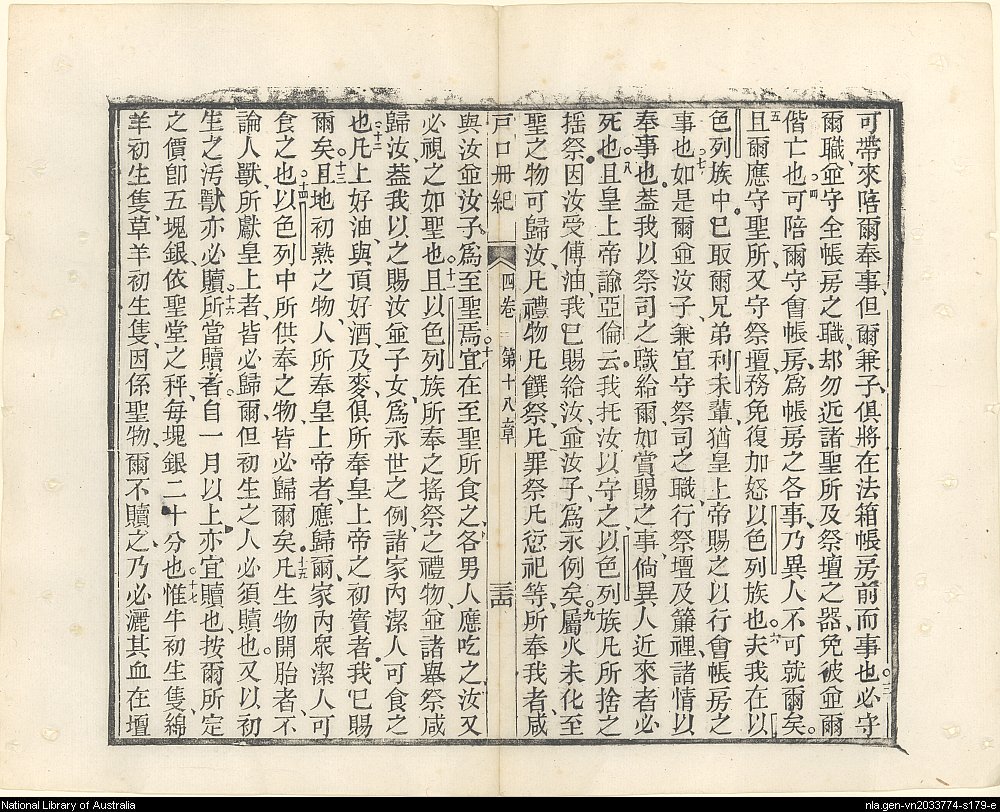 可帶來陪爾奉事、但爾兼子、俱將在法箱帳房前而事也。○三必守
爾職、並守全帳房之職、却勿近諸聖所及祭壇之器、免彼並爾
偕亡也。○四可陪爾守會帳房、為帳房之各事、乃異人不可就爾矣。
○五且爾應守聖所、又守祭壇、務免復加怒以色列族也。○六夫我在以
色列族中、已取爾兄弟利未輩、猶皇上帝賜之以行會帳房之
事也。○七如是爾並汝子、兼宜守祭司之職、行祭壇及簾裡、諸情以
奉事也。蓋我以祭司之職給爾、如賞賜之事、倘異人近來者、必
死也。○八且皇上帝諭亞倫云、我托汝以守之、以色列族凡所捨之
搖祭、因汝受傅油、我已賜給汝、並汝子為永例矣。○九屬火未化至
聖之物、可歸汝、凡禮物、凡饌祭、凡罪祭、凡愆祀等、所奉我者、咸
戶口冊紀 四卷 第十八章 三西
與汝並汝子為至聖焉。○十宜在至聖所食之、各男人應吃之、汝又
必視之如聖也。○十一且以色列族所奉之搖祭之禮物、並諸舉祭咸
歸汝、蓋我以之賜汝並子女、為永世之例、諸家內潔人可食之
也。○十二凡上好油、與頂好酒及麥、俱所奉皇上帝之初實者、我已賜
爾矣。○十三且地初熟之物、人所奉皇上帝者、應歸爾、家內眾潔人可
食之也。○十四以色列中所供奉之物、皆必歸爾矣。○十五凡生物開胎者、不
論人獸、所獻皇上者、皆必歸爾、但初生之人必須贖也。又以初
生之污獸、亦必贖。○十六所當贖者、自一月以上、亦宜贖也、按爾所定
之價、卽五塊銀、依聖堂之秤、每塊銀二十分也。○十七惟牛初生隻、綿
羊初生隻、草羊初生隻、因係聖物、爾不贖之、乃必灑其血在壇
National Library of Australia
nla.gen-vn2033774-s179-e